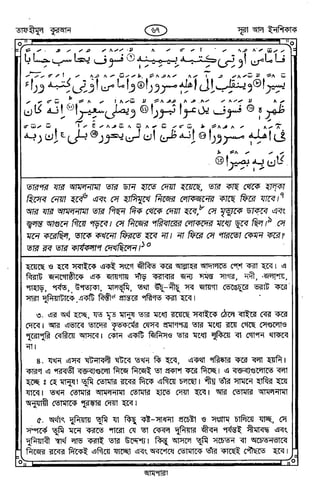 তাফহীমুল কুরআন
৬৭
সূরা আল ইনশিকাক
فَأَمَّا مَنْ أُوتِيَ كِتٰبَهٗ بِيَمِيْنِهٖ ۙ فَسَوْفَ يُحَاسَبُ حِسَابًا
يَّسِيْرًا ۙ وَّيَنْقَلِبُ إِلٰى أَهْلِهٖ مَسْرُوْرًا ۙ وَأَمَّا مَنْ أُوتِيَ كِتٰبَهٗ وَرَآءَ
ظَهْرِهٖ ۙ فَسَوْفَ يَدْعُوْا ثُبُوْرًا ۙ وَّيَصْلٰى سَعِيْرًا ۙ إِنَّهٗ كَانَ
فِيْ أَهْلِهٖ مَسْرُوْرًا ۙ إِنَّهٗ ظَنَّ أَنْ لَّنْ يَّحُوْرَ ۙ بَلٰى ۚ إِنَّ رَبَّهٗ
كَانَ بِهٖ بَصِيْرًا ۙ
তারপর যার আমলনামা তার ডান হাতে দেয়া হয়েছে, তার কাছ থেকে হাল্কা
হিসেব নেয়া হবে৬ এবং সে হাসিমুখে নিজের লোকজনের কাছে ফিরে যাবে।৭
আর যার আমলনামা তার পিছন দিক থেকে দেয়া হবে,৮ সে মৃত্যুকে ডাকবে এবং
জ্বলন্ত আগুনে গিয়ে পড়বে। সে নিজের পরিবারের লোকদের মধ্যে ডুবে ছিল।৯ সে
মনে করেছিল, তাকে কখনো ফিরতে হবে না। না ফিরে সে পারতো কেমন করে?
তার রব তার কার্যকলাপ দেখছিলেন।১০
হয়েছে ও হবে সবাইকে একই সংগে জীবিত করে আল্লাহর আদালতে পেশ করা হবে। এ
বিরাট জনগোষ্ঠীকে এক জায়গায় দাঁড় করাবার জন্য সমস্ত সাগর, নদী, জলাশয়,
পাহাড়, পর্বত, উপত্যকা, মালভূমি, তথা উঁচু-নীচু সব জায়গা ভেঙ্গেচুরে ভরাট করে
সারা দুনিয়াটাকে একটি বিস্তীর্ণ প্রান্তরে পরিণত করা হবে।
৩. এর অর্থ হচ্ছে, যত মৃত মানুষ তার মধ্যে রয়েছে সবাইকে ঠেলে বাইরে বের করে
দেবে। আর এভাবে তাদের কৃতকর্মের যেসব প্রমাণপত্র তার মধ্যে রয়ে গেছে সেগুলোও
পুরোপুরি বেরিয়ে আসবে। কোন একটি জিনিসও তার মধ্যে লুকিয়ে বা গোপন থাকবে
না।
৪. যখন এসব ঘটনাবলী ঘটবে তখন কি হবে, একথা পরিষ্কার করে বলা হয়নি।
কারণ এ পরবর্তী বক্তব্যগুলো নিজে নিজেই তা প্রকাশ করে দিচ্ছে। এ বক্তব্যগুলোতে বলা
হচ্ছে : হে মানুষ! তুমি তোমার রবের দিকে এগিয়ে চলছো। শীঘ্র তাঁর সামনে হাযির হয়ে
যাবে। তখন তোমার আমলনামা তোমার হাতে দেয়া হবে। আর তোমার আমলনামা
অনুযায়ী তোমাকে পুরস্কার দেয়া হবে।
৫. অর্থাৎ দুনিয়ায় তুমি যা কিছু কষ্ট-সাধনা প্রচেষ্টা ও সংগ্রাম চালিয়ে যাচ্ছ, সে
সম্পর্কে তুমি মনে করতে পারো যে তা কেবল দুনিয়ার জীবন পর্যন্তই সীমাবদ্ধ এবং
দুনিয়াবী স্বার্থ লাভ করাই তার উদ্দেশ্য। কিন্তু আসলে তুমি সচেতন বা অচেতনভাবে
নিজের রবের দিকেই এগিয়ে যাচ্ছো এবং অবশেষে তোমাকে তাঁর কাছেই পৌঁছতে হবে।
আমপারা